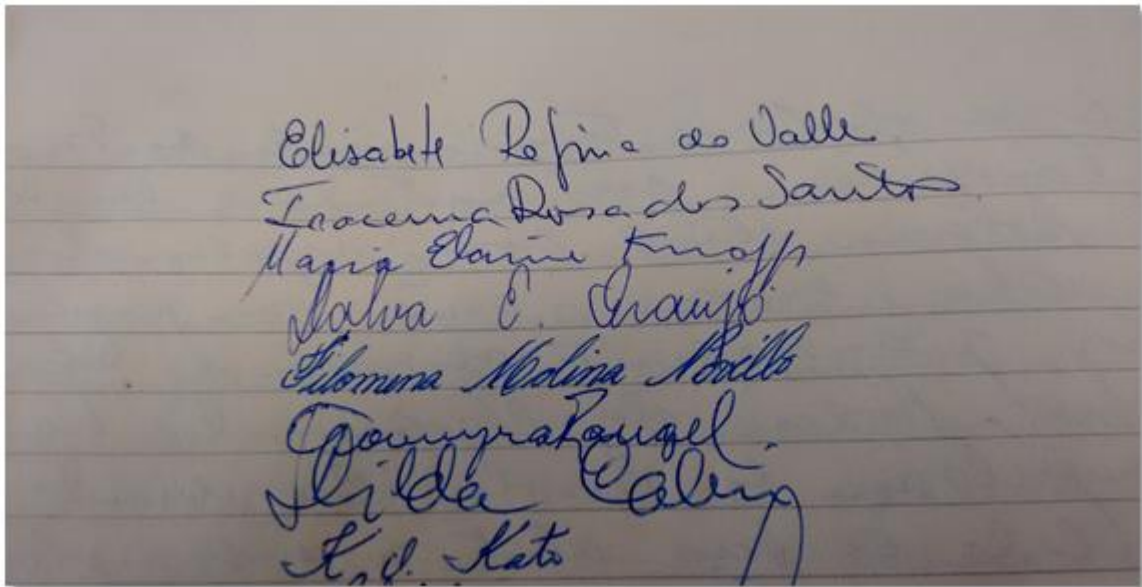 Elisabete Regina do Valle
Iracema Rosa dos Santos
Maria Elaine Knopp
Dalva E. Araujo
Filomena Molina
Rangel.
Hilda
Kato